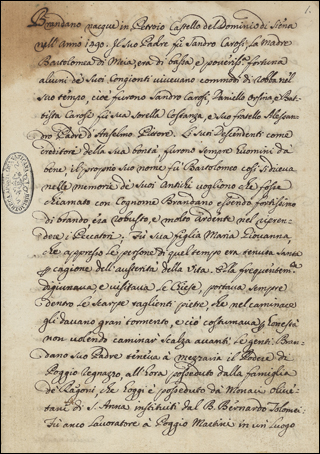 1.
Brandano nacque in Petroio Castello del Dominio di Siena
nell'anno 1490. Il Suo Padre fù Sandro Carosi, la Madre
Bartolomea di Meia, era di bassa e povera fortuna
alcuni de Suoi Congionti vivevano commodi di robba nel
suo tempo, cioè furono Sandro Carosi, Daniello e Bat-
tista Carosi fù sua Sorella Costanza, e suo fratello Alessan-
dro Padre d'Anselmo Pittore. Li suoi Descendenti come
creditore della sua bontà furono sempre Huomini da
bene, il proprio suo nome fù Bartolomeo così si dice và
nelle memorie de Suoi Antichi vogliono che fosse
chiamato con Cognome Brandano essendo fortissimo
di brando era robusto, e molto ardente nel ripren-
dere i Peccatori. Fù sua figlia Maria Giovanna,
che appresso le persone di quel tempo era tenuta Santa
cagione dell'austerità della Vita. Ella frequentem.te
digiunava, e visitava le Chiese, portava sempre
dentro le Scarpe taglienti pietre, che nel caminare
gli davano gran tormento, e ciò costumava p. honestà
non volendo caminar scalza avanti le genti. Bran-
dano suo Padre teneva à mezzaria il Podere di
Poggio Cegnazzo, all'hora posseduto dalla famiglia
de che hoggi è posseduto da Monaci Olive-
tani di S. Anna instituiti dal B. Bernardo Tolomei
Fù anco lavoratore à Poggio Martini in un luogo